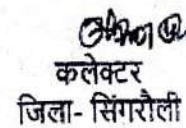 कलेक्टर
जिला- सिंगरौली